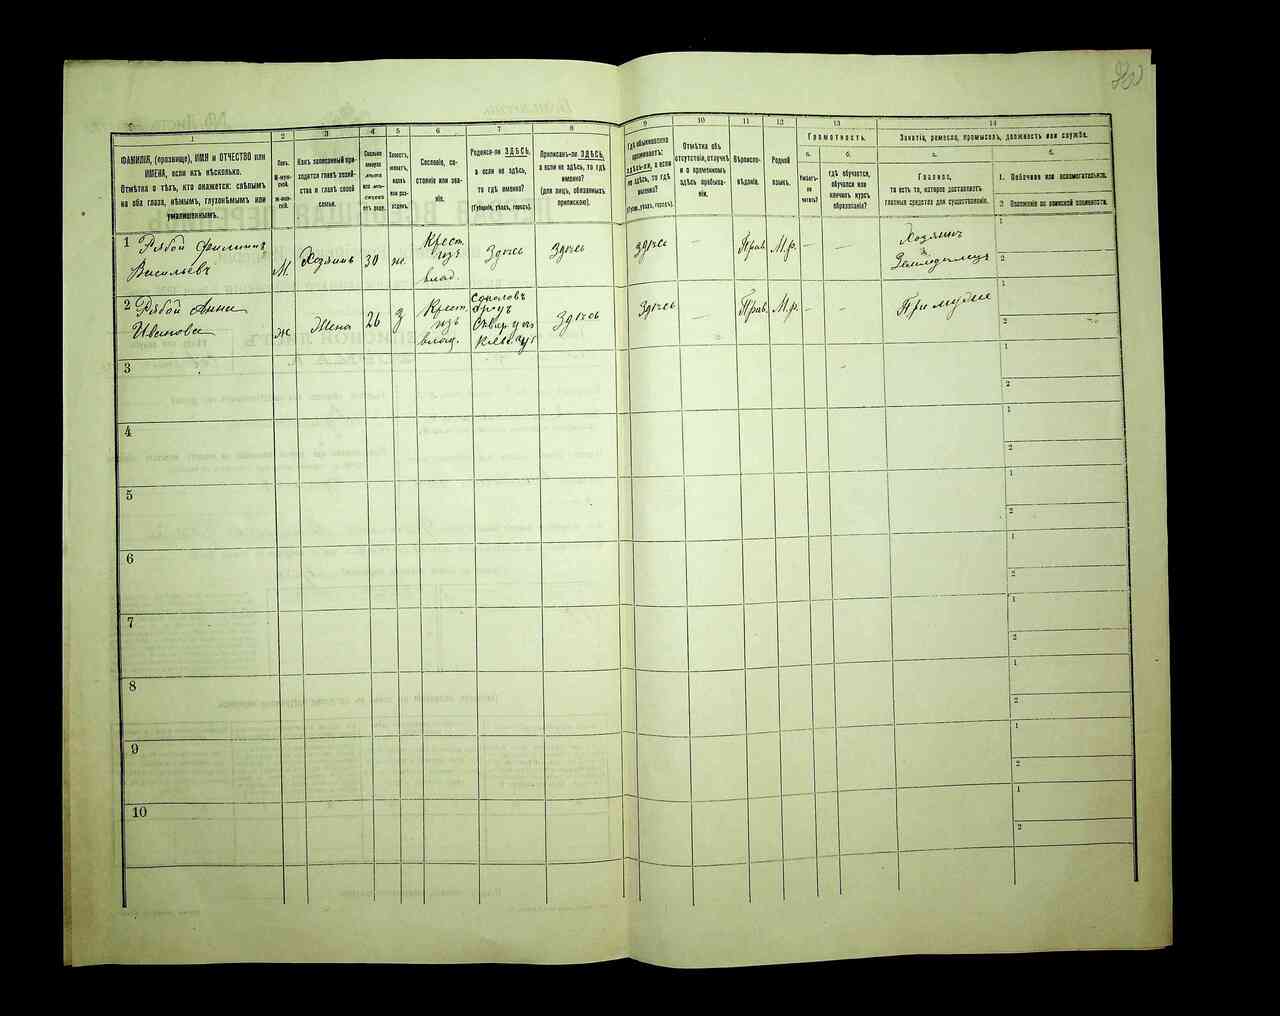 1
2
3
4
5
6
7
8
9
10
11
12
13
14
ФАМИЛІЯ, (прозвище), ИМЯ и ОТЧЕСТВО или
ИМЕНА, если ихъ нѣсколько.
Отмѣтка о тѣхъ, кто окажется: слѣпымъ
на оба глаза, нѣмымъ, глухонѣмымъ или
умалишеннымъ.
Полъ.
М-муж-
ской.
Ж-жен-
скій.
Какъ записанный при-
ходится главѣ хозяй-
ства и главѣ своей
семьи.
Сколько
минуло
лѣтъ
или мѣ-
сяцевъ
отъ роду.
Холостъ,
женатъ,
вдовъ
или раз-
веденъ.
Сословіе, со-
стояніе или зва-
ніе.
Родился-ли ЗДѢСЬ,
а если не здѣсь,
то гдѣ именно?
(Губернія, уѣздъ, городъ).
Приписанъ-ли ЗДѢСЬ,
а если не здѣсь, то гдѣ
именно?
(для лицъ, обязанныхъ
припискою).
Гдѣ обыкновенно
проживаетъ:
здѣсь-ли, а если
не здѣсь, то гдѣ
именно?
(Губерн., уѣздъ, городъ).
Отмѣтка объ
отсутствіи, отлучкѣ
и о временномъ
здѣсь пребыва-
ніи.
Вѣроиспо-
вѣданіе.
Родной
языкъ.
Грамотность.
а.
б.
Умѣетъ-
ли
читать?
Гдѣ обучается,
обучался или
кончилъ курсъ
образованія?
Занятіе, ремесло, промыселъ, должность или служба.
а.
б.
Главное,
то есть то, которое доставляетъ
главныя средства для существованія.
1. Побочное или вспомогательное.
2 Положеніе по воинской повинности.
1 Рябой Филиппъ
Васильевъ
М.
Хозяинъ
30
ж
Крест.
изъ
влад.
Здѣсь
Здѣсь
Здѣсь
—
Прав.
М.р.
—
—
Хозяинъ
Земледѣлецъ
1
2
2 Рябой Анна
Иванова
ж
Жена
26
з
Крест.
изъ
влад.
Здѣсь
Здѣсь
—
Прав.
М.р.
—
—
При мужѣ
1
2
3
1
2
4
1
2
5
1
2
6
1
2
7
1
2
8
1
2
9
1
2
10
1
2